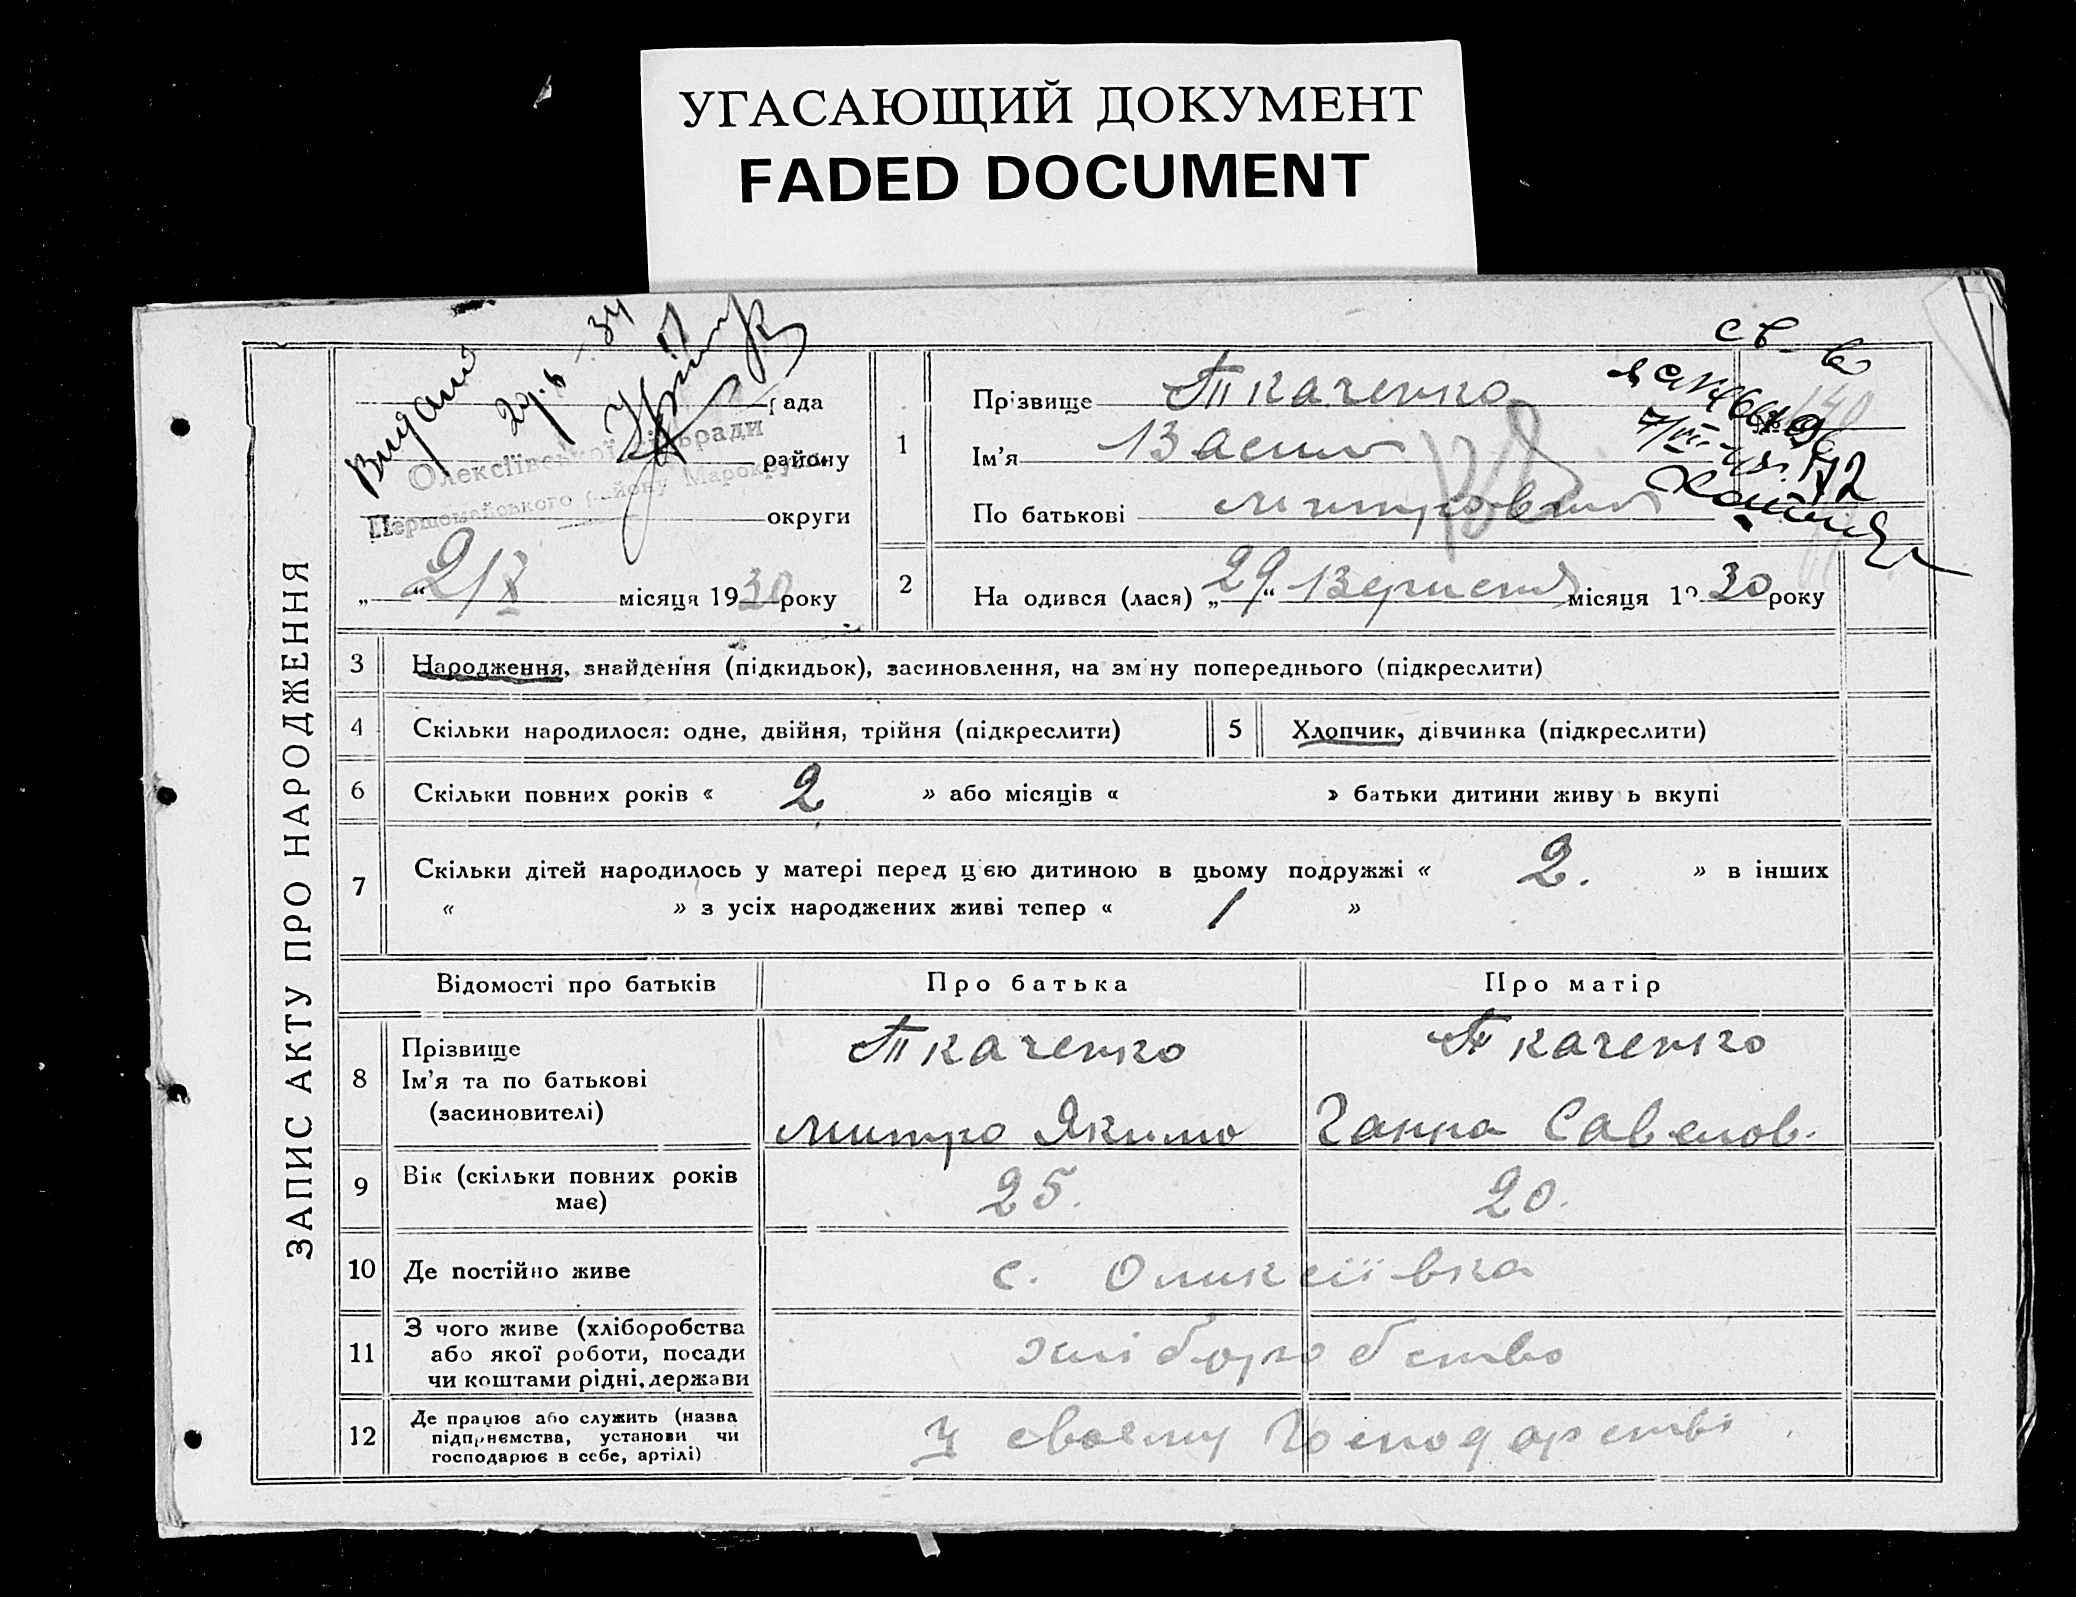 УГАСАЮЩИЙ ДОКУМЕНТ
FADED DOCUMENT
ЗАПИС АКТУ ПРО НАРОДЖЕННЯ
Видано 29.6-34
рада
Олексіївської сільради
району
Першомайського району Марокруги
округи
„2/X“ місяця 1930 року
1
Прізвище Ткаченко
Ім'я Васил
По батькові Митрович
св. в
7/VII-43.
2
На одився (лася) „29“ Вересня місяця 1930 року
3 Народження, знайдення (підкидьок), засиновлення, на зм ну попереднього (підкреслити)
4 Скільки народилося: одне, двійня, трійня (підкреслити) 5 Хлопчик, дівчинка (підкреслити)
6 Скільки повних років « 2 » або місяців « » батьки дитини живу ь вкупі
7 Скільки дітей народилось у матері перед ц єю дитиною в цьому подружжі « 2. » в інших
« » з усіх народжених живі тепер « 1 »
Відомості про батьків Про батька Про матір
8 Прізвище Ткаченко Ткаченко
Ім'я та по батькові
(засиновителі) Митро Якимо Ганна Савелов.
9 Вік (скільки повних років має) 25. 20.
10 Де постійно живе с. Оликсіївка
11 З чого живе (хліборобства
або якої роботи, посади хліборобство
чи коштами рідні, держави
12 Де працює або служить (назва
підприємства, установи чи У своєму господарстві
господарює в себе, артілі)